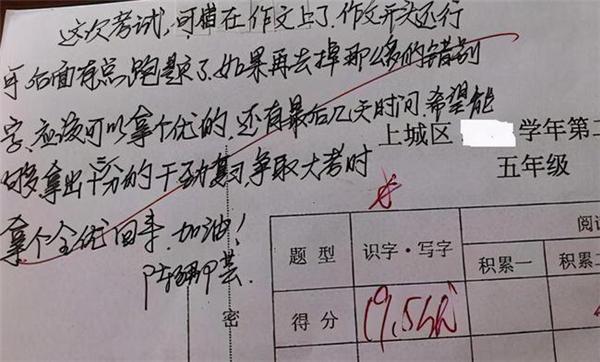 这次考试,可惜在作文上了.作文开头还行
可后面有点跑题了.如果再去掉那么多的错别
字,应该可以拿个优的.还有最后几天时间,希望能
够拿出十二分的干劲复习,争取大考时
拿个全优回来.加油!
上城区 学年第二
五年级
题型 识字·写字 阅
积累一 积累二
得分 19.5
密